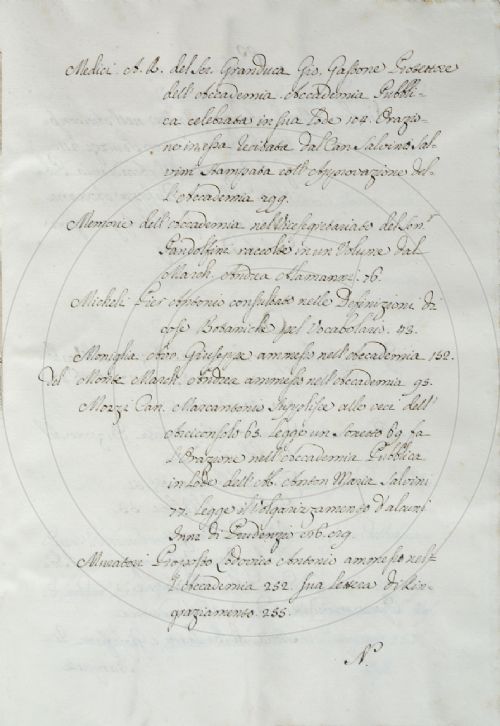 Medici A. R. del Ser. Granduca Gio. Gastone Protettore
dell'Accademia. Accademia Pubbli-
ca celebrata in sua lode 104. Orazio-
ne in essa recitata dal Can. Salvino Sal-
vini Stampata coll'Approvazione del-
l'Accademia 299.
Memorie dell'Accademia nel Vicesegretariato del Sen.r
Pandolfini raccolte in un Volume dal
March. Andrea Alamanni. 76.
Micheli Pier Antonio consultato nelle Definizioni di
cose Botaniche pel Vocabolario. 43.
Moniglia Giuseppe ammesso nell'Accademia 152.
Del Monte March. Andrea ammesso nell'Accademia 93.
Mozzi Can. Marcantonio supplisce alle veci dell'
Arciconsolo 63. Legge un Sonetto 69. fa
l'Orazione nell'Accademia Pubblica
in lode dell'Ab. Anton Maria Salvini
77. legge il Volgarizzamento d'alcuni
Inni di Prudenzio
Muratori Proposto Lodovico Antonio ammesso nel-
l'Accademia 232. sua lettera di Rin-
graziamento 235.
N.